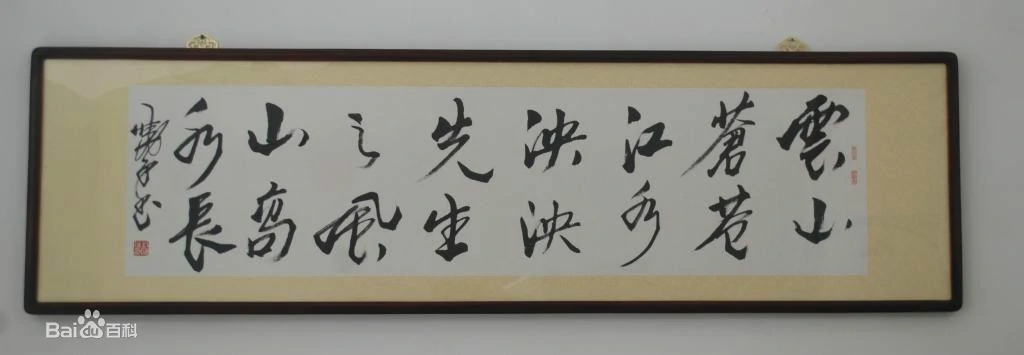 雲山
蒼蒼
江水
泱泱
先生
之風
山高
水長
Baidu百科